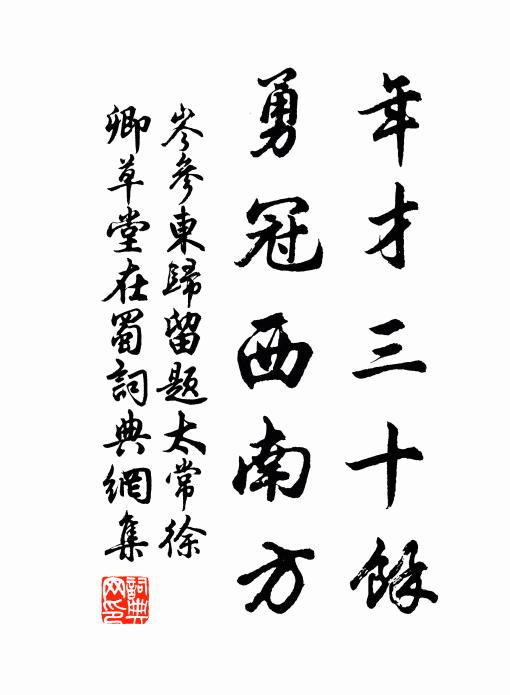 年才三十餘
勇冠西南方
岑參東歸留題太常徐
卿草堂在蜀詞典網集
詞典網印